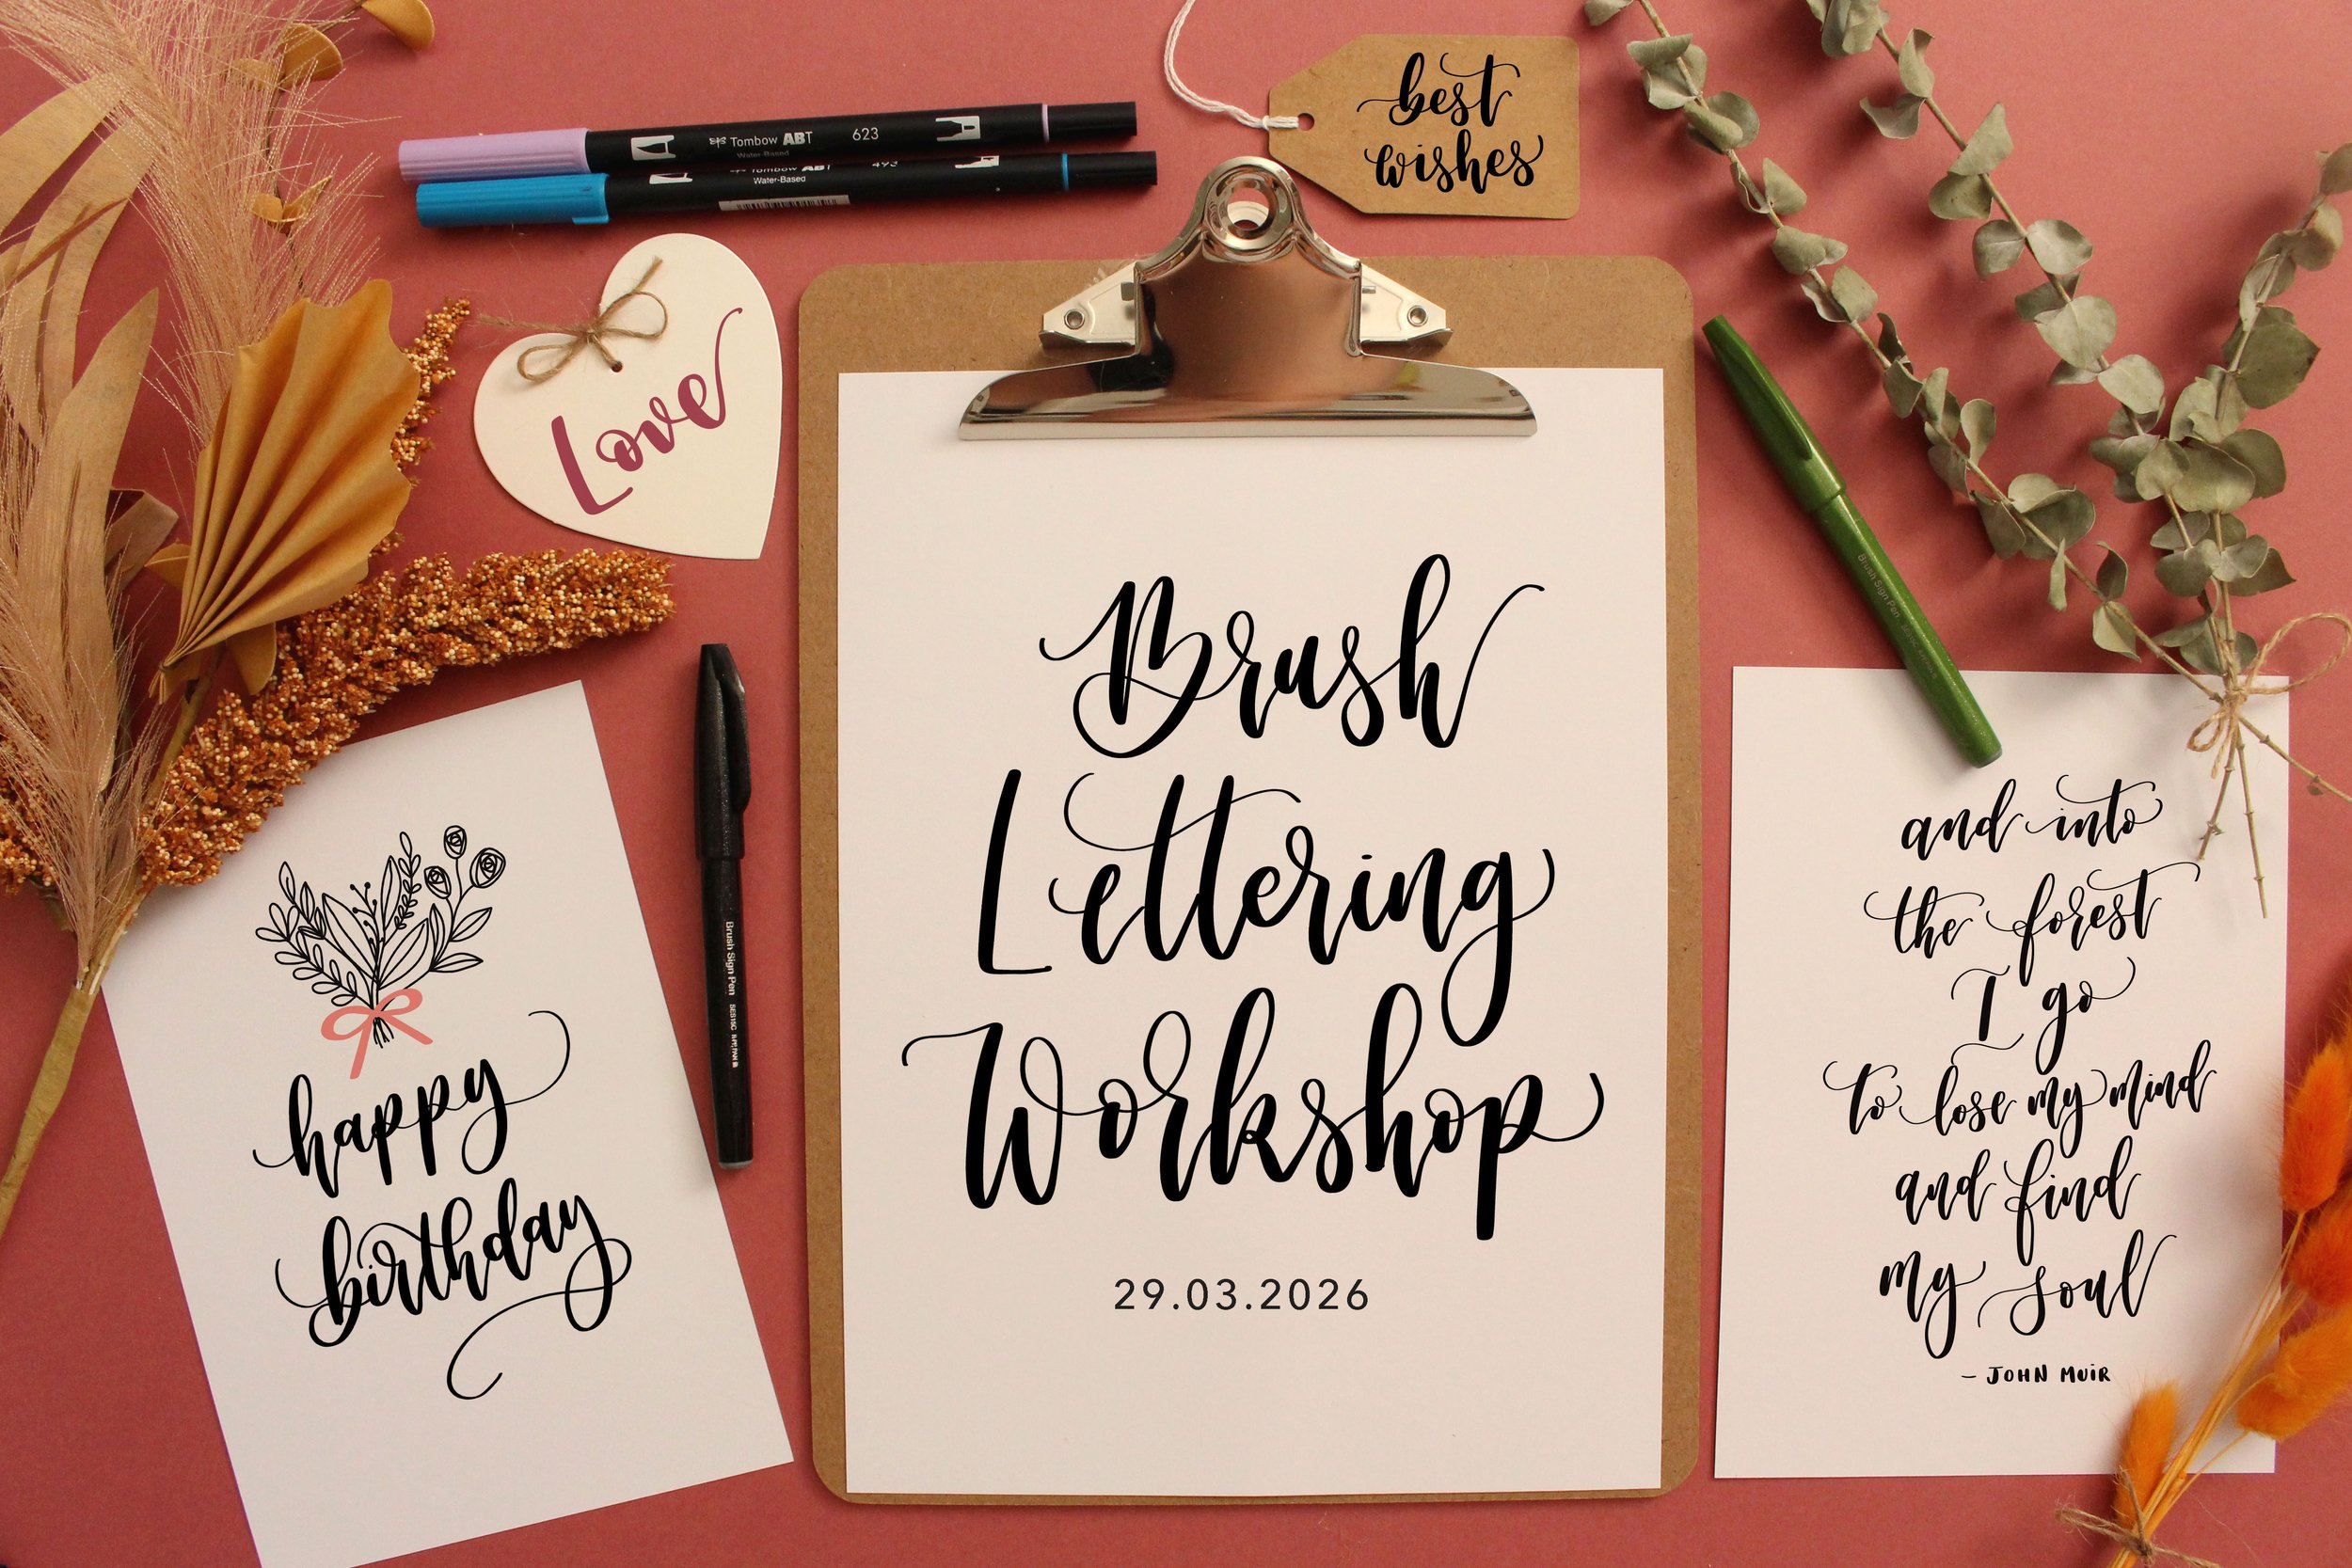 Tombow ABT 623
Water-Based
Tombow ABT 493
Water-Based
best
wishes
Love
Brush
Lettering
Workshop
29.03.2026
Brush Sign Pen
Brush Sign Pen SES15C JAPAN
happy
birthday
and into
the forest
I go
to lose my mind
and find
my soul
– JOHN MUIR